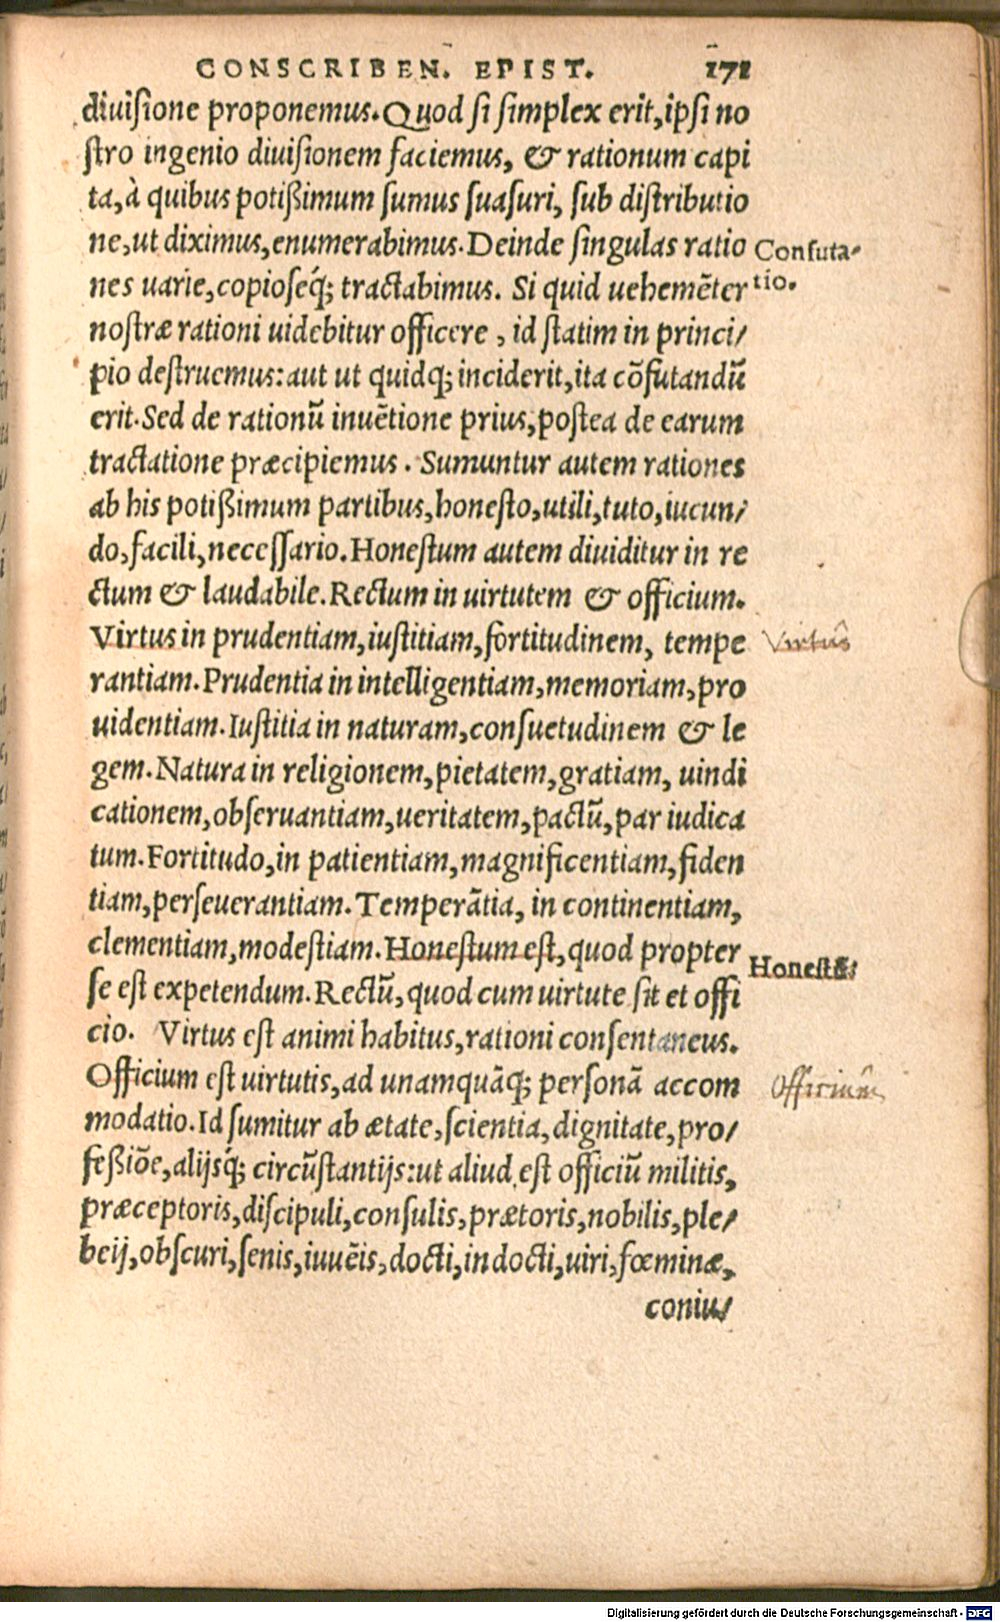 CONSCRIBEN. EPIST. 171
diuiſione proponemus. Quod ſi ſimplex erit, ipſi no
ſtro ingenio diuiſionem faciemus, & rationum capi
ta, à quibus potißimum ſumus ſuaſuri, ſub diſtributio
ne, ut diximus, enumerabimus. Deinde ſingulas ratio
Confuta-
nes uarie, copioſeq́; tractabimus. Si quid uehemẽter
tio.
noſtræ rationi uidebitur officere, id ſtatim in princi/
pio deſtruemus: aut ut quidq; inciderit, ita cõfutandũ
erit. Sed de rationũ inuẽtione prius, poſtea de earum
tractatione præcipiemus. Sumuntur autem rationes
ab his potißimum partibus, honeſto, utili, tuto, iucun/
do, facili, neceſſario. Honeſtum autem diuiditur in re
ctum & laudabile. Rectum in uirtutem & officium.
Virtus in prudentiam, iuſtitiam, fortitudinem, tempe
Virtus
rantiam. Prudentia in intelligentiam, memoriam, pro
uidentiam. Iuſtitia in naturam, conſuetudinem & le
gem. Natura in religionem, pietatem, gratiam, uindi
cationem, obſeruantiam, ueritatem, pactũ, par iudica
tum. Fortitudo, in patientiam, magnificentiam, fiden
tiam, perſeuerantiam. Temperãtia, in continentiam,
clementiam, modeſtiam. Honeſtum eſt, quod propter
Honestũ/
ſe eſt expetendum. Rectũ, quod cum uirtute ſit et offi
cio. Virtus eſt animi habitus, rationi conſentaneus.
Officium eſt uirtutis, ad unamquãq; perſonã accom
Officium
modatio. Id ſumitur ab ætate, ſcientia, dignitate, pro/
feßiõe, alijsq́; circũſtantijs: ut aliud eſt officiũ militis,
præceptoris, diſcipuli, conſulis, prætoris, nobilis, ple/
beij, obſcuri, ſenis, iuuẽis, docti, indocti, uiri, fœminæ,
coniu/
Digitalisierung gefördert durch die Deutsche Forschungsgemeinschaft - DFG